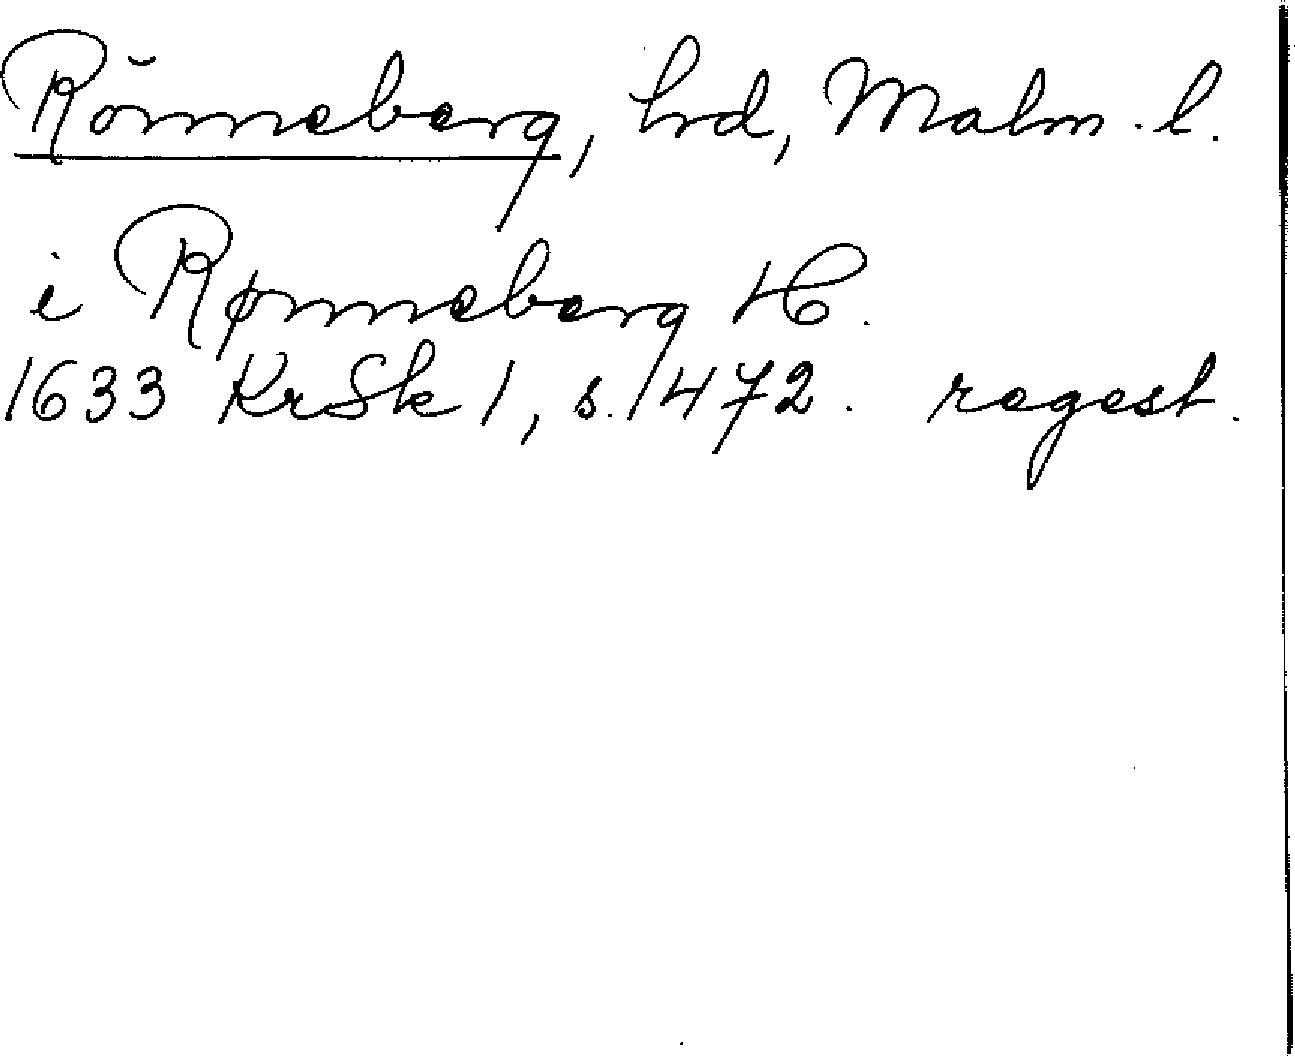 Rönneberg, hrd, Malm. l.
i Rønneberg H.
1633 KrSk 1, s. 472. regest.